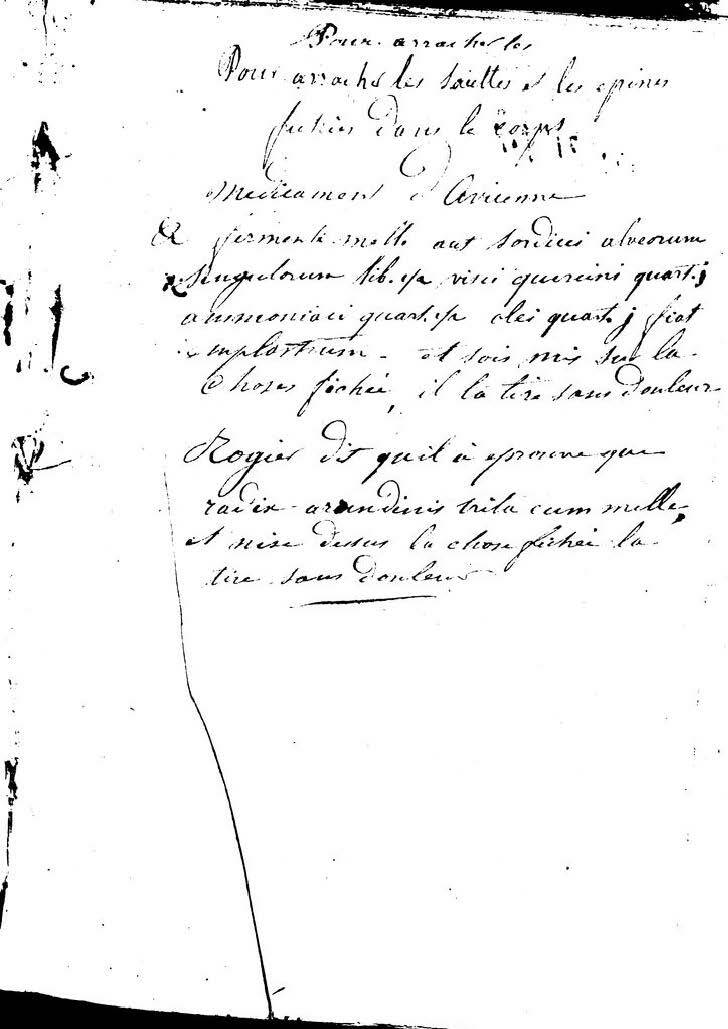 Pour arracher les
Pour arracher les saiettes et les epines
fichées dans le corps
Medicament d'Avicenne
fermenti melle aut sordici alveorum
singulorum lib. visci quercini quart. j
ammoniaci quart. olei quart. j fiat
emplastrum. et sois mis sur la
chose fichée, il la tire sans douleur
Rogier dit quil à eprouvé que
radix arundinis trita cum melle,
et mise dessus la chose fichée la
tire sans douleur